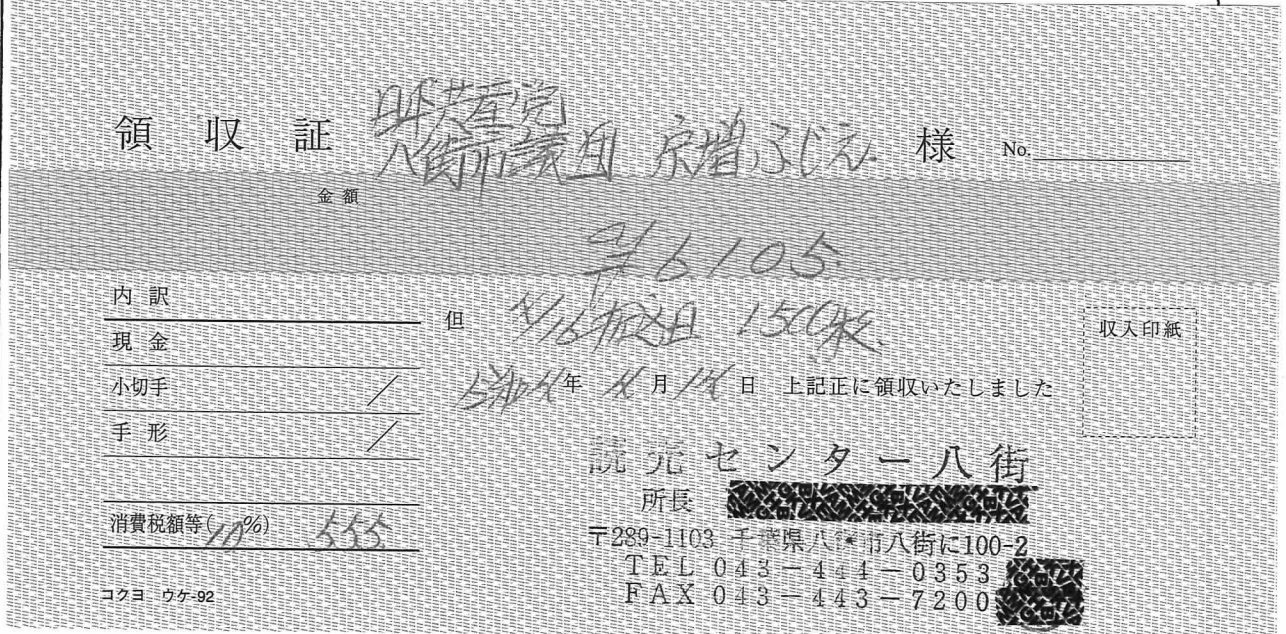 領収証 日本共産党
八街市議団 京増ふじえ 様 No.
金額
¥6105.
内訳
現金
小切手 /
手形 /
消費税額等(10%) 555
但 折込日 1500枚
年 月 日 上記正に領収いたしました
収入印紙
読売センター八街
所長
〒289-1103 千葉県八街市八街に100-2
TEL 043-444-0353
FAX 043-443-7200
コクヨ ウケ-92